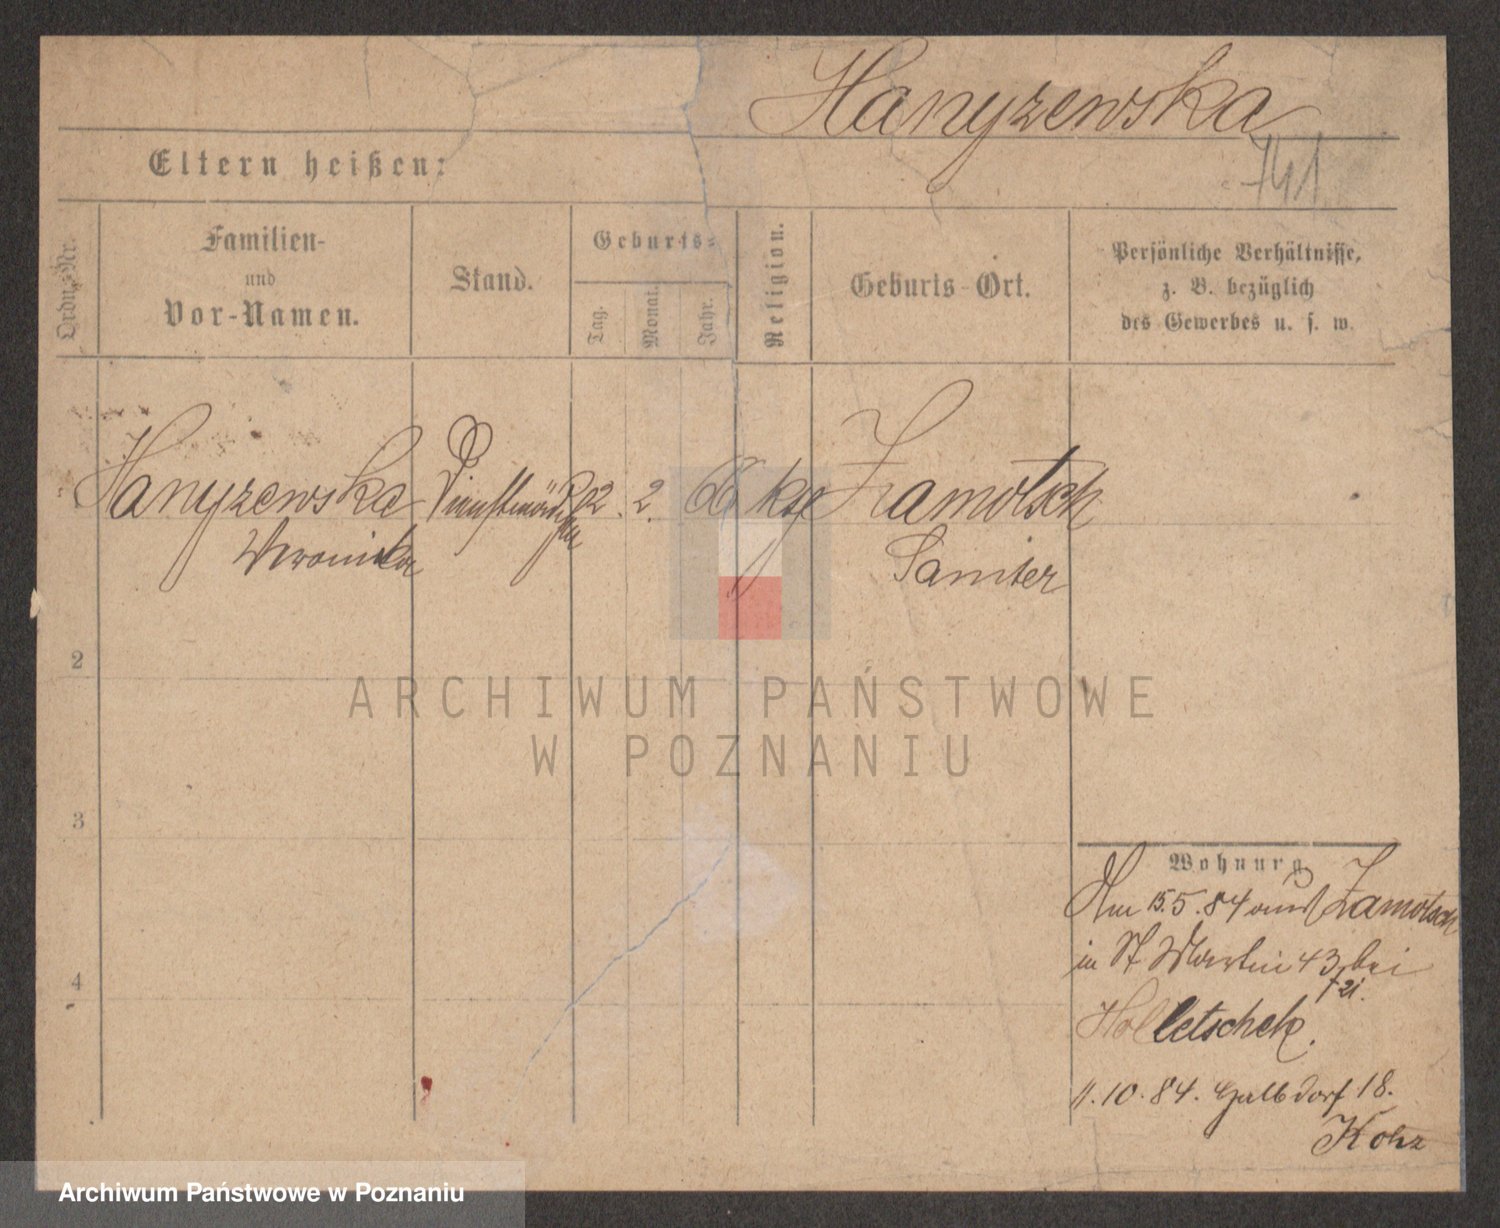 Hanyzewska
741
Eltern heißen:
Ordn.-Nr.
Familien-
und
Vor-Namen.
Stand.
Geburts-
Tag.
Monat.
Jahr.
Religion.
Geburts-Ort.
Persönliche Verhältnisse,
z. B. bezüglich
des Gewerbes u. s. w.
Hanyzewska Dienstmädchen 2. kge Zamotsch
Veronika Samter
2
3
4
Wohnung
Am 15.5.84 aus Zamotsch
in St Martin 43 bei
Holletschek.
11.10.84. Halbdorf 18.
ARCHIWUM PAŃSTWOWE
W POZNANIU
Archiwum Państwowe w Poznaniu